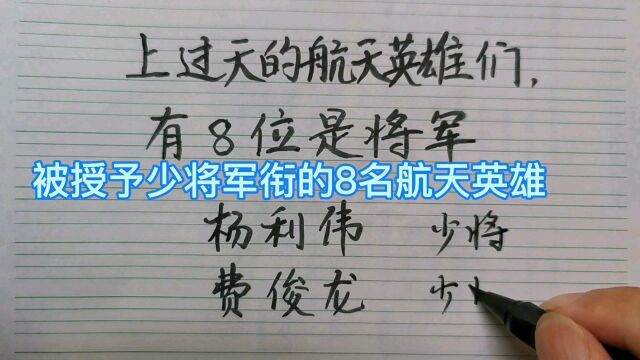 上过天的航天英雄们,
有8位是将军
被授予少将军衔的8名航天英雄
杨利伟 少将
费俊龙 少